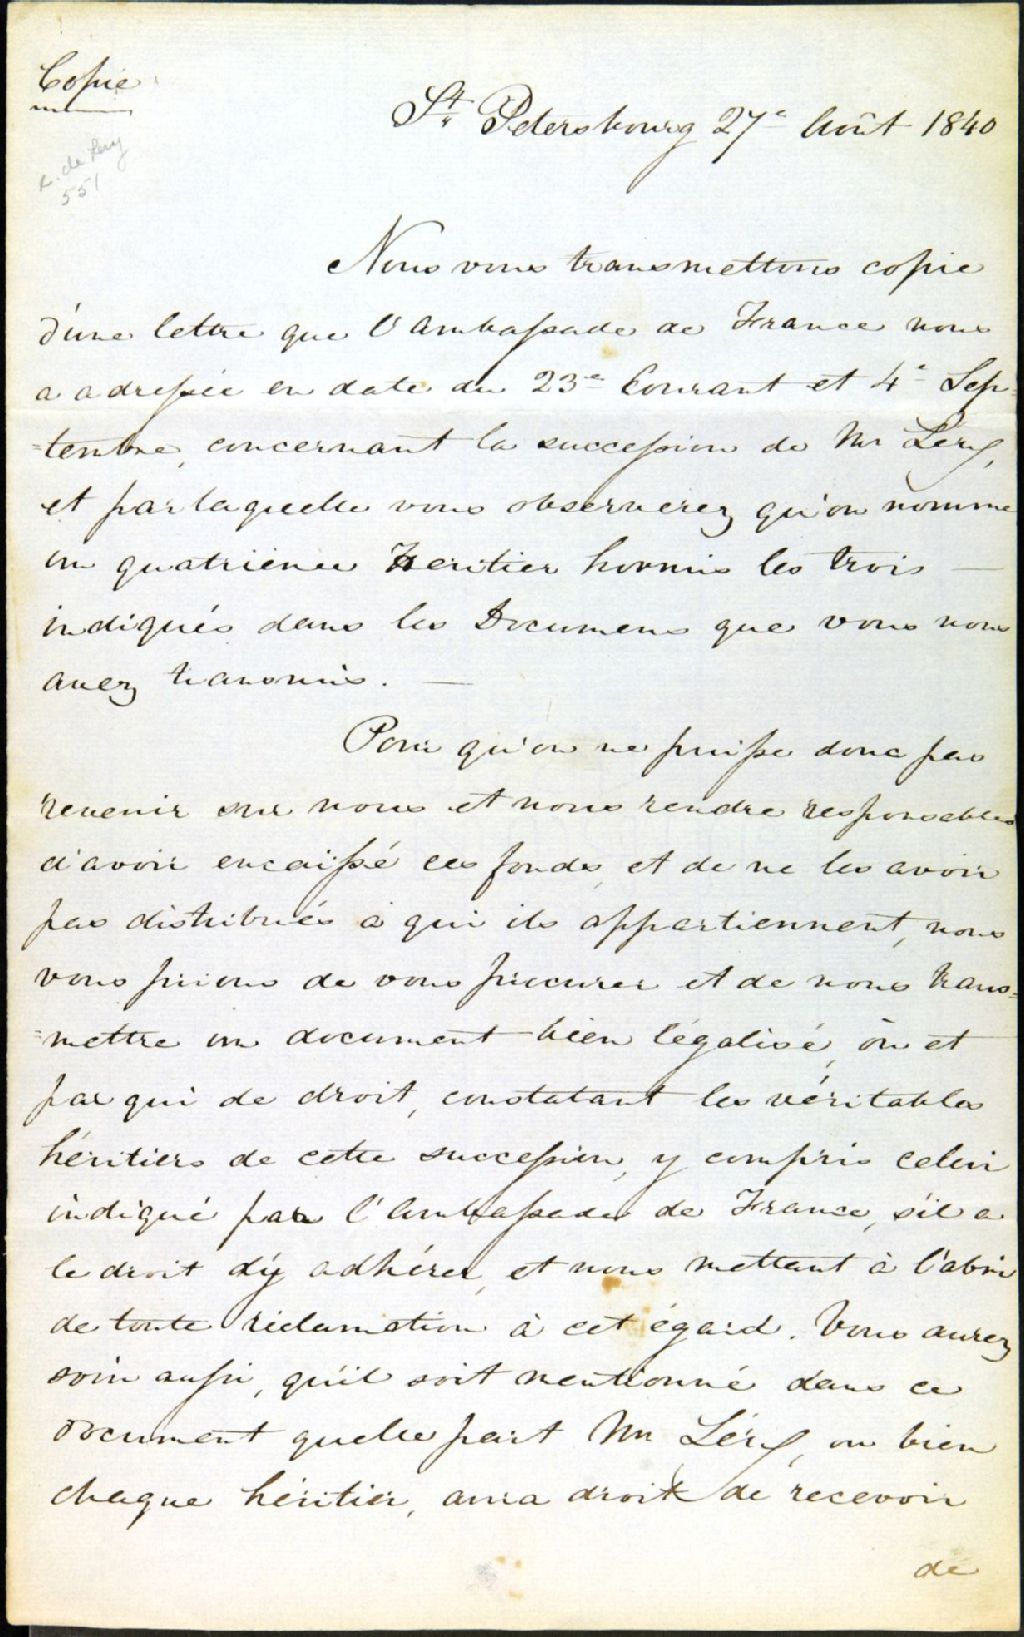 Copie
St. Petersbourg 27e Août 1840
R. de Léry
551
Nous vous transmettons copie
d'une lettre que l'Ambassade de France nous
a adressée en date du 23e Courant et 4e Sep=
=tembre, concernant la succession de Mr Léry,
et par laquelle vous observerez qu'on nomme
un quatrième Heritier hormis les trois —
indiqués dans les Documens que vous nous
avez transmis. —
Pour qu'on ne puisse donc pas
revenir sur nous et nous rendre responsables
d'avoir encaissé ces fonds, et de ne les avoir
pas distribués à qui ils appartiennent, nous
vous prions de vous procurer et de nous trans=
=mettre un document bien légalisé, où et
par qui de droit, constatant les véritables
héritiers de cette succession, y compris celui
indiqué par l'Ambassade de France, s'il a
le droit d'y adhérer, et nous mettant à l'abri
de toute réclamation à cet égard. Vous aurez
soin aussi, qu'il soit mentionné dans ce
document quelle part Mr Léry, ou bien
chaque héritier, aura droit de recevoir
de